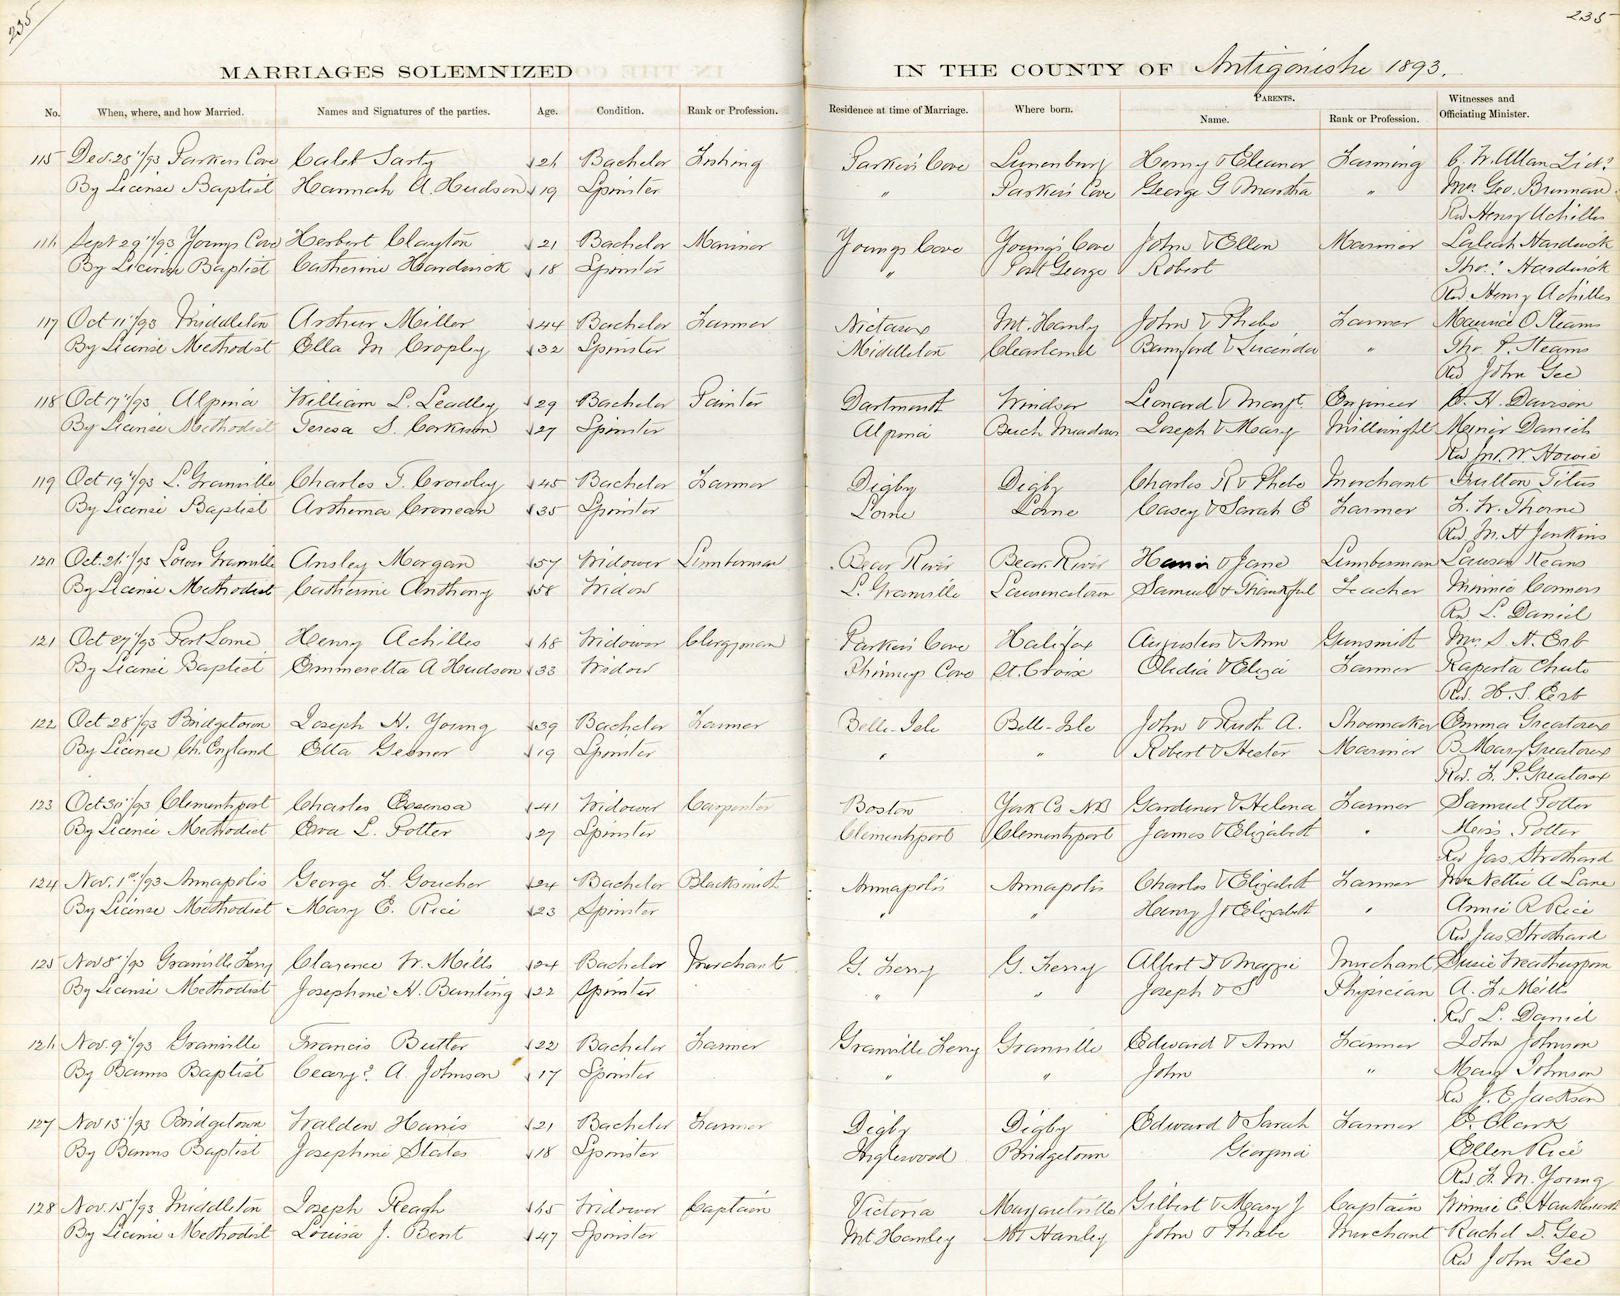 235
235
MARRIAGES SOLEMNIZED IN THE COUNTY OF Antigonishe 1893.
No. When, where, and how Married. Names and Signatures of the parties. Age. Condition. Rank or Profession. Residence at time of Marriage. Where born. PARENTS. Name. Rank or Profession. Witnesses and Officiating Minister.
115 Dec. 28"/93 Parkers Cove Caleb Sarty 26 Bachelor Fishing Parker's Cove Lunenburg Henry & Eleanor Farming C. W. Allan
By License Baptist Hannah A. Hudson 19 Spinster " Parker's Cove George G Martha " Mrs. Geo. Brennan
Rev Henry Achilles
116 Sept 29"/93 Youngs Cove Herbert Clayton 21 Bachelor Mariner Youngs Cove Young's Cove John & Ellen Mariner Hardwick
By License Baptist Catherine Hardwick 18 Spinster " Port George Robert Thos. Hardwick
Rev Henry Achilles
117 Oct 11"/93 Middleton Arthur Miller 44 Bachelor Farmer Nictaux Mt. Hanly John & Phebe Farmer Maurice O Stearns
By License Methodist Ella M Cropley 32 Spinster Middleton Clearland Bamford & Lucinda " Tho. P. Stearns
Rev John Gee
118 Oct 17"/93 Alpina William L. Leadley 29 Bachelor Painter Dartmouth Windsor Leonard & Margt. Engineer H. Davison
By License Methodist Teresa S. Corkum 27 Spinster Alpina Buch Meadows Joseph & Mary Millwright Minor Daniels
Rev Jn. W. Howie
119 Oct 19"/93 L. Granville Charles T. Crowley 45 Bachelor Farmer Digby Digby Charles R & Phebe Merchant Titus
By License Baptist Arthema Cronean 35 Spinster Lorne Lorne Casey & Sarah E Farmer F. W. Thorne
Rev. M. H Jenkins
120 Oct. 26"/93 Lower Granville Ansley Morgan 57 Widower Lumberman Bear River Bear River & Jane Lumberman Lawson Keans
By License Methodist Catherine Anthony 58 Widow L. Granville Lawrencetown Samuel & Thankful Teacher Minnie Connors
Rev L. Daniel
121 Oct 27"/93 Port Lorne Henry Achilles 68 Widower Clergyman Parker's Cove Halifax Augustus & Ann Gunsmith Mrs S. N. Erb
By License Baptist Emmeretta A Hudson 33 Widow Phinneys Cove St. Croix Obidia & Eliza Farmer Raperta Chute
Rev. H. S. Erb
122 Oct 28"/93 Bridgetown Joseph H. Young 39 Bachelor Farmer Belle-Isle Bell-Isle John & Ruth A. Shoemaker Emma Greatorex
By License Ch. England Etta Gesner 19 Spinster " " Robert & Hester Mariner B Mary Greatorex
Rev. F. P. Greatorex
123 Oct 30"/93 Clementsport Charles Essensa 41 Widower Carpenter Boston York Co NB Gardiner & Helena Farmer Samuel Potter
By License Methodist Eva L. Potter 27 Spinster Clementsport Clementsport James & Elizabeth " Meiss Potter
Rev Jas Strothard
124 Nov. 1st/93 Annapolis George F. Goucher 24 Bachelor Blacksmith Annapolis Annapolis Charles & Elizabeth Farmer Mrs Nettie A Lane
By License Methodist Mary E. Rice 23 Spinster " " Henry J & Elizabeth " Annie R Rice
Rev Jas Strothard
125 Nov 8"/93 Granville Ferry Clarence W. Mills 24 Bachelor Merchant G. Ferry G. Ferry Albert D Maggie Merchant Susie Weatherspoon
By License Methodist Josephine H. Bunting 22 Spinster " " Joseph & S Physician A. F. Mills
Rev L. Daniel
126 Nov. 9"/93 Granville Francis Butler 22 Bachelor Farmer Granville Ferry Granville Edward & Ann Farmer John Johnson
By Banns Baptist Ceary? A. Johnson 17 Spinster " " John " Mary Johnson
Rev J. E Jackson
127 Nov 15"/93 Bridgetown Walden Harris 21 Bachelor Farmer Digby Digby Edward & Sarah Farmer E. Clark
By Banns Baptist Josephine States 18 Spinster Inglewood Bridgetown Georgina Ellen Rice
Rev F. M. Young
128 Nov. 15"/93 Middleton Joseph Reagh 65 Widower Captain Victoria Margaretville Gilbert & Mary J Captain Minnie E. Hawkesworth
By License Methodist Louisa J. Bent 47 Spinster Mt Hanley Mt Hanley John & Phebe Merchant Rachel D. Gee
Rev John Gee